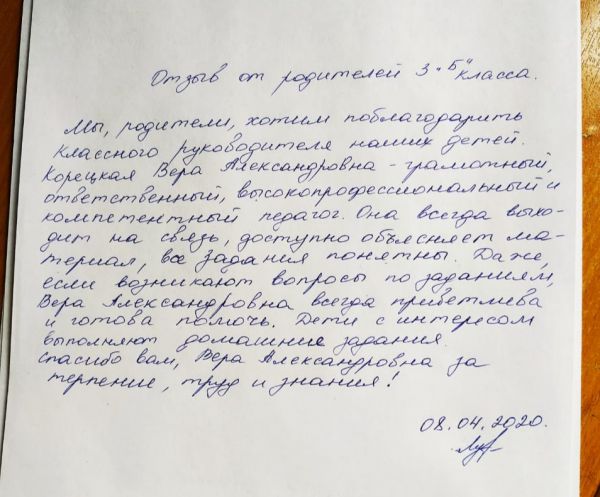 Отзыв от родителей 3 "Б" класса.
Мы, родители, хотим поблагодарить
классного руководителя наших детей.
Корецкая Вера Александровна - грамотный,
ответственный, высокопрофессиональный и
компетентный педагог. Она всегда выхо-
дит на связь, доступно объясняет ма-
териал, все задания понятны. Даже,
если возникают вопросы по заданиям,
Вера Александровна всегда приветлива
и готова помочь. Дети с интересом
выполняют домашние задания.
Спасибо вам, Вера Александровна за
терпение, труд и знания!
08.04.2020.